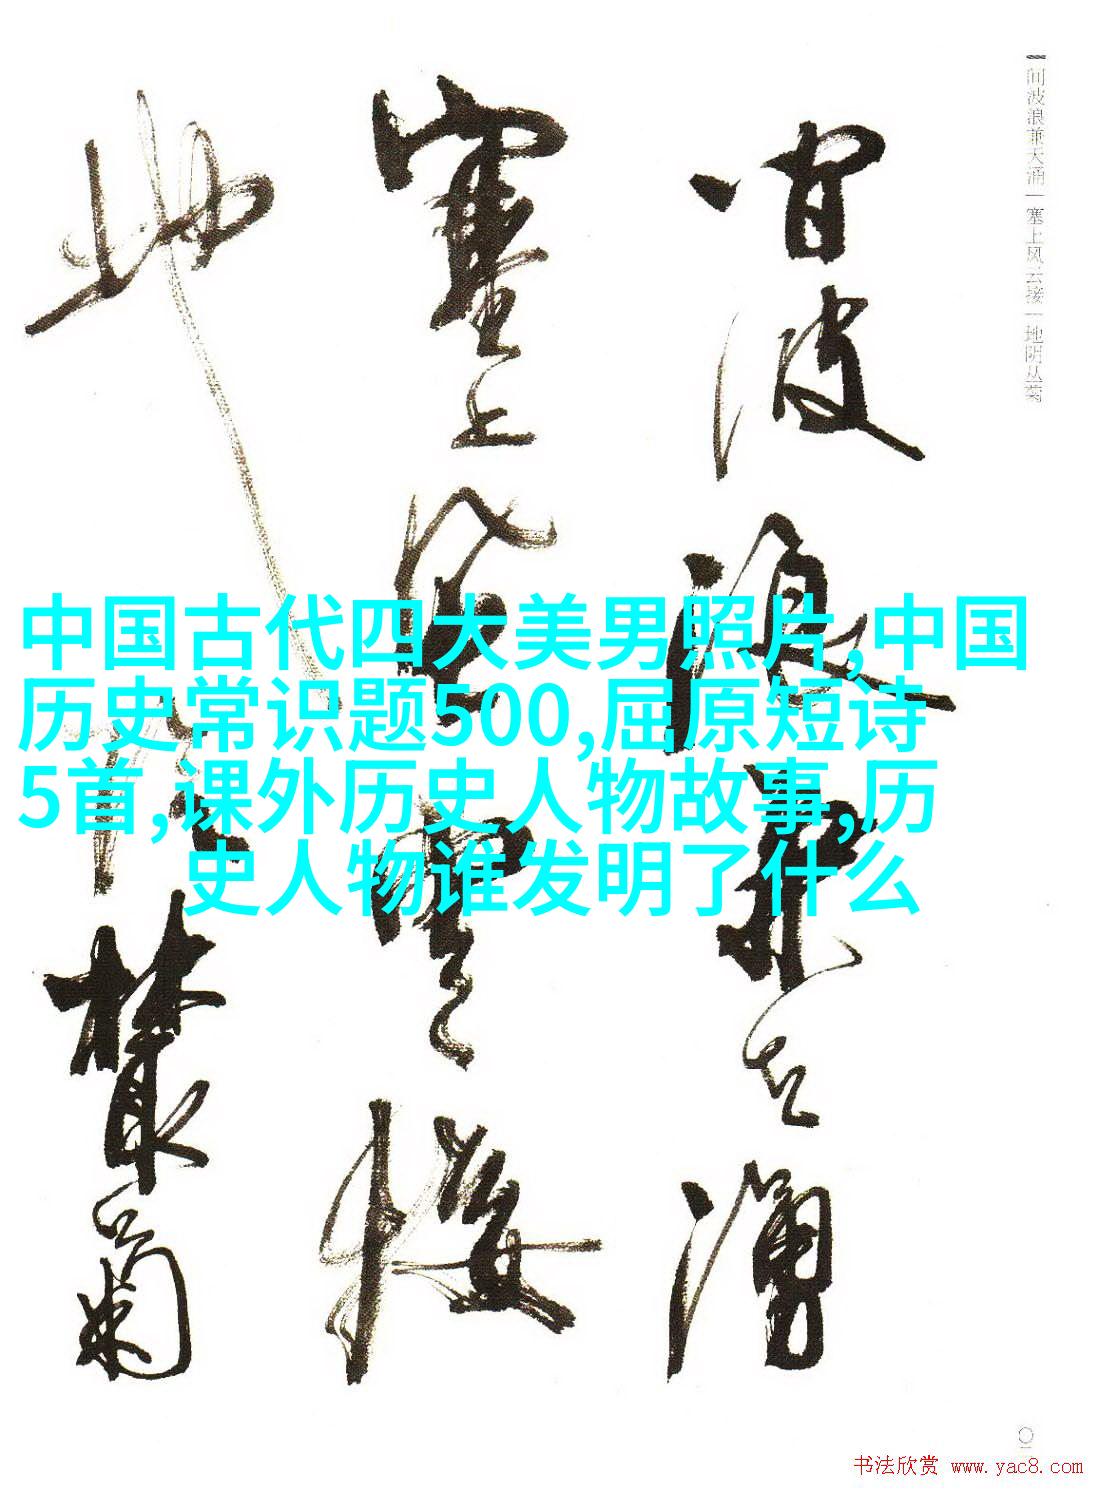 间波浪兼天涌 塞上风云接 地阴丛菊
间波浪兼天涌
塞上风云接
地阴丛菊
中国古代四大美男照片,中国
历史常识题500,屈原短诗
5首,课外历史人物故事,历
史人物谁发明了什么
书法欣赏 www.yac8.com